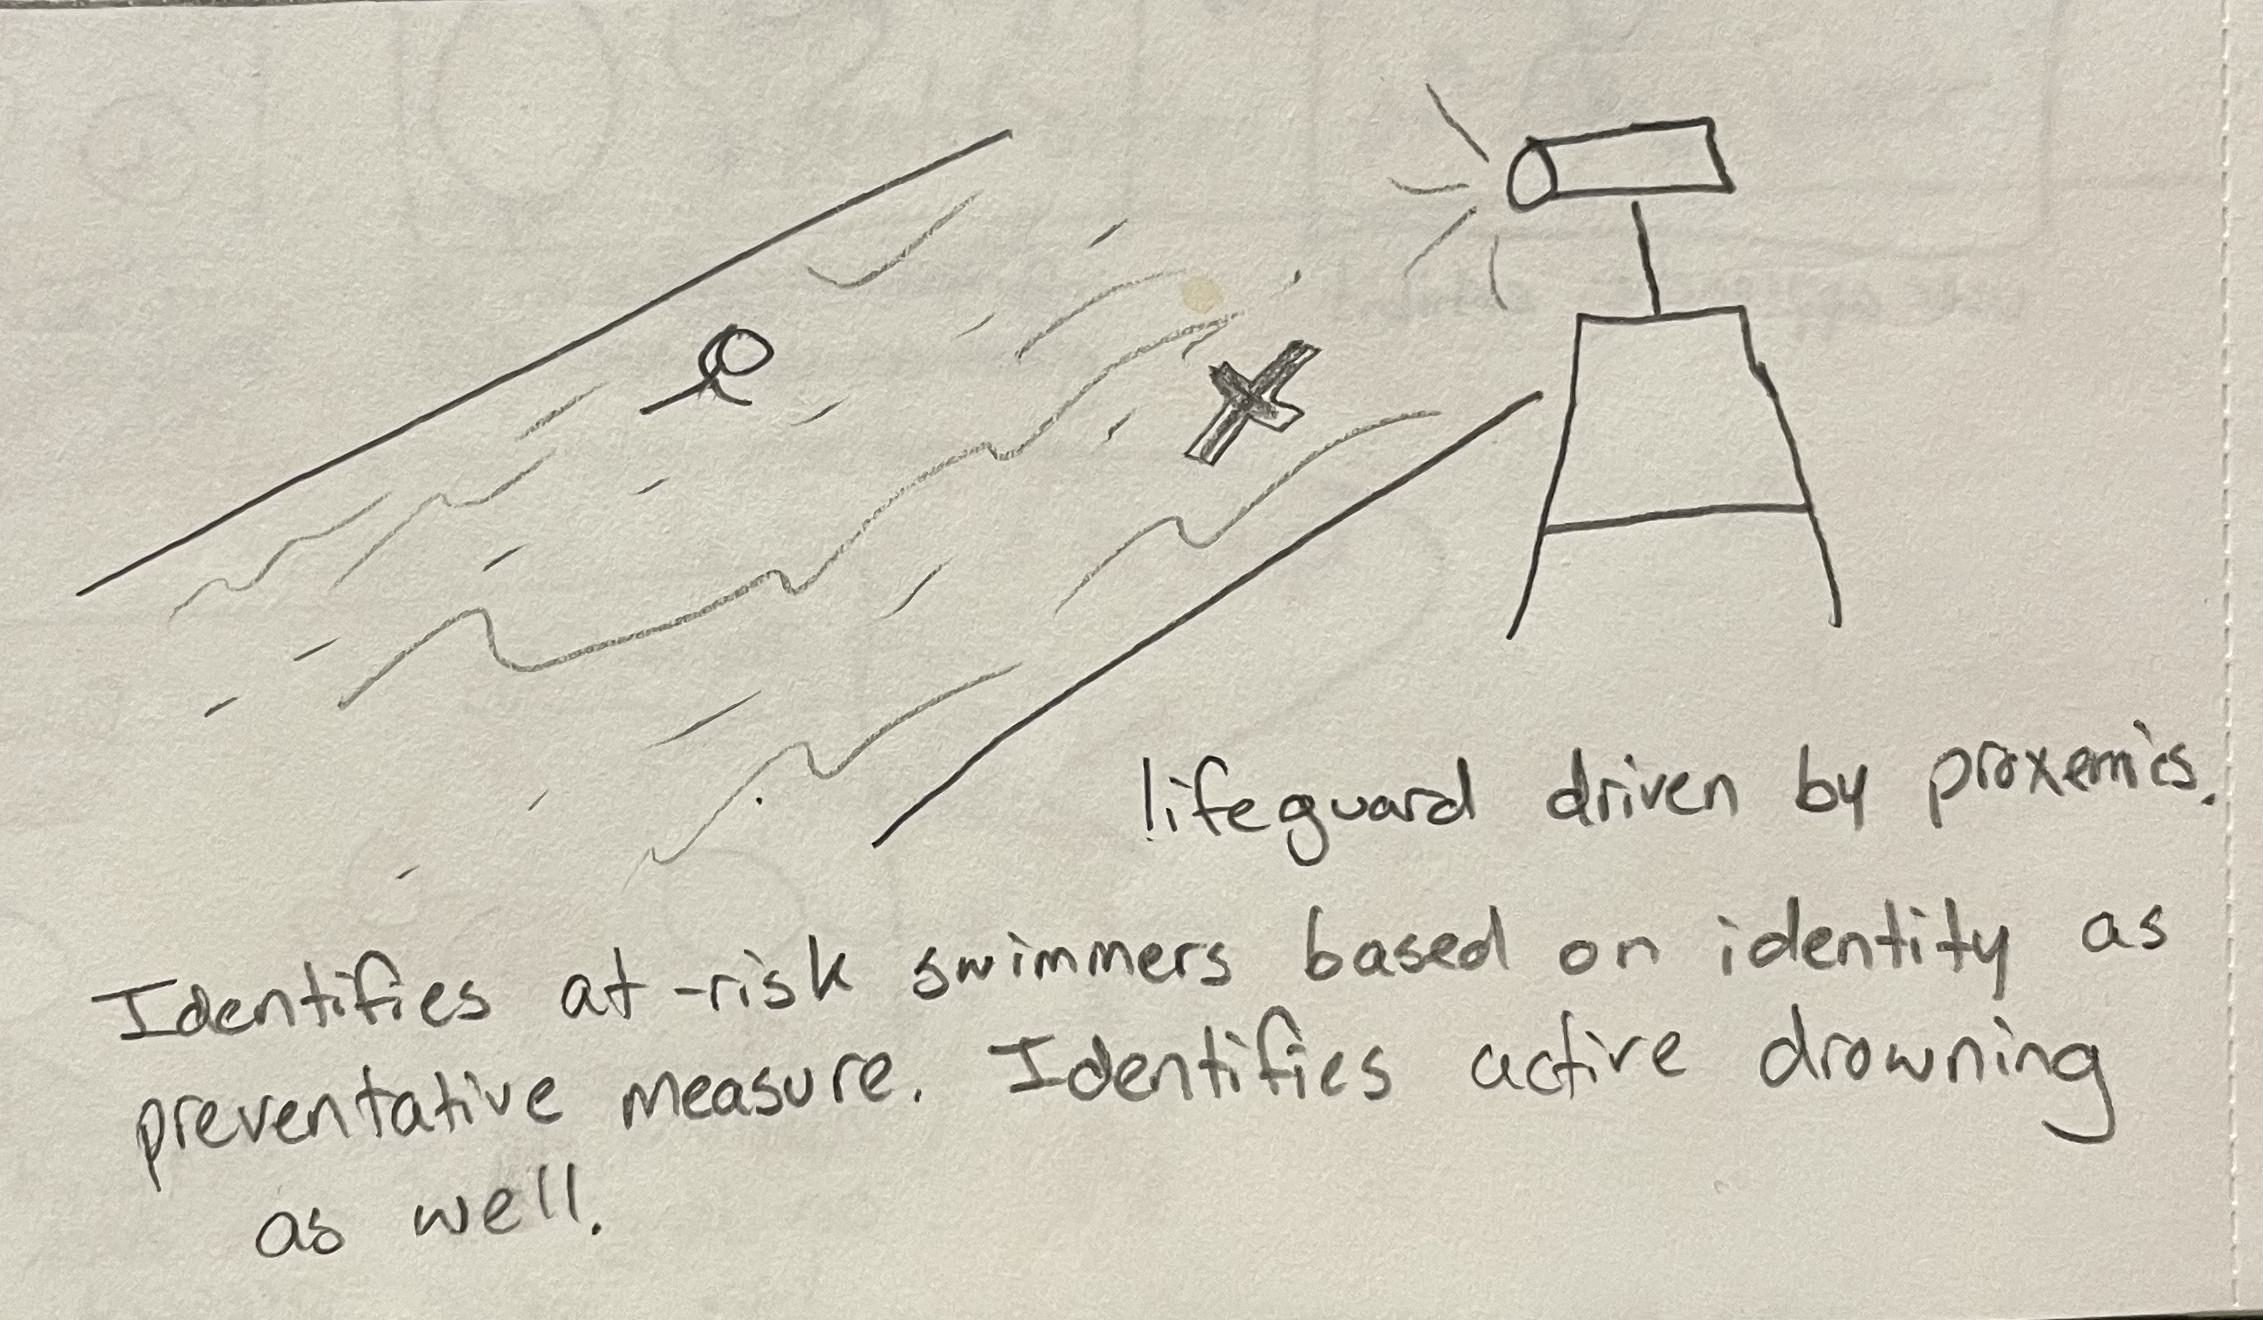 lifeguard driven by proxemics.
Identifies at-risk swimmers based on identity as
preventative measure. Identifies active drowning
as well.